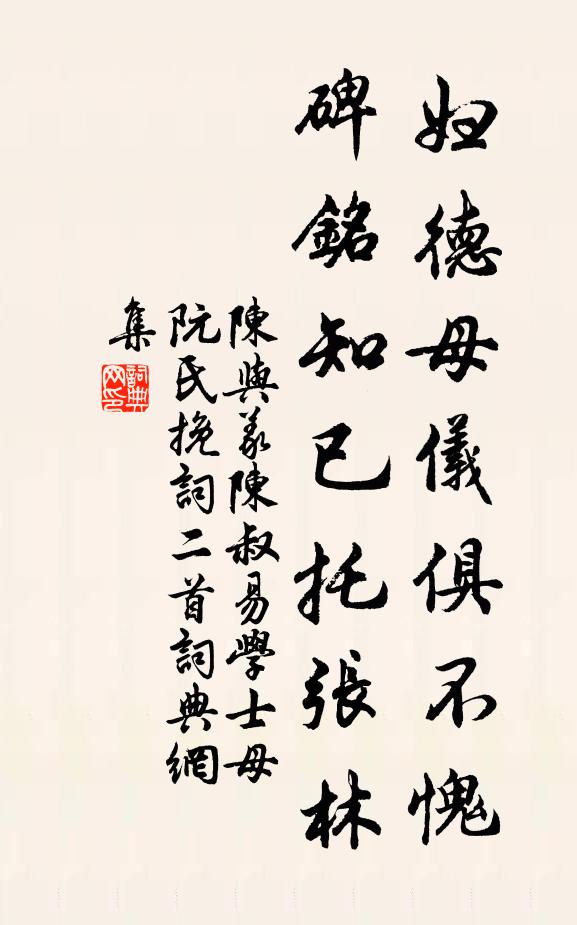 婦德母儀俱不愧
碑銘知已托張林
陳與義陳叔易學士母
阮氏挽詞二首詞典網
集
詞典
网印